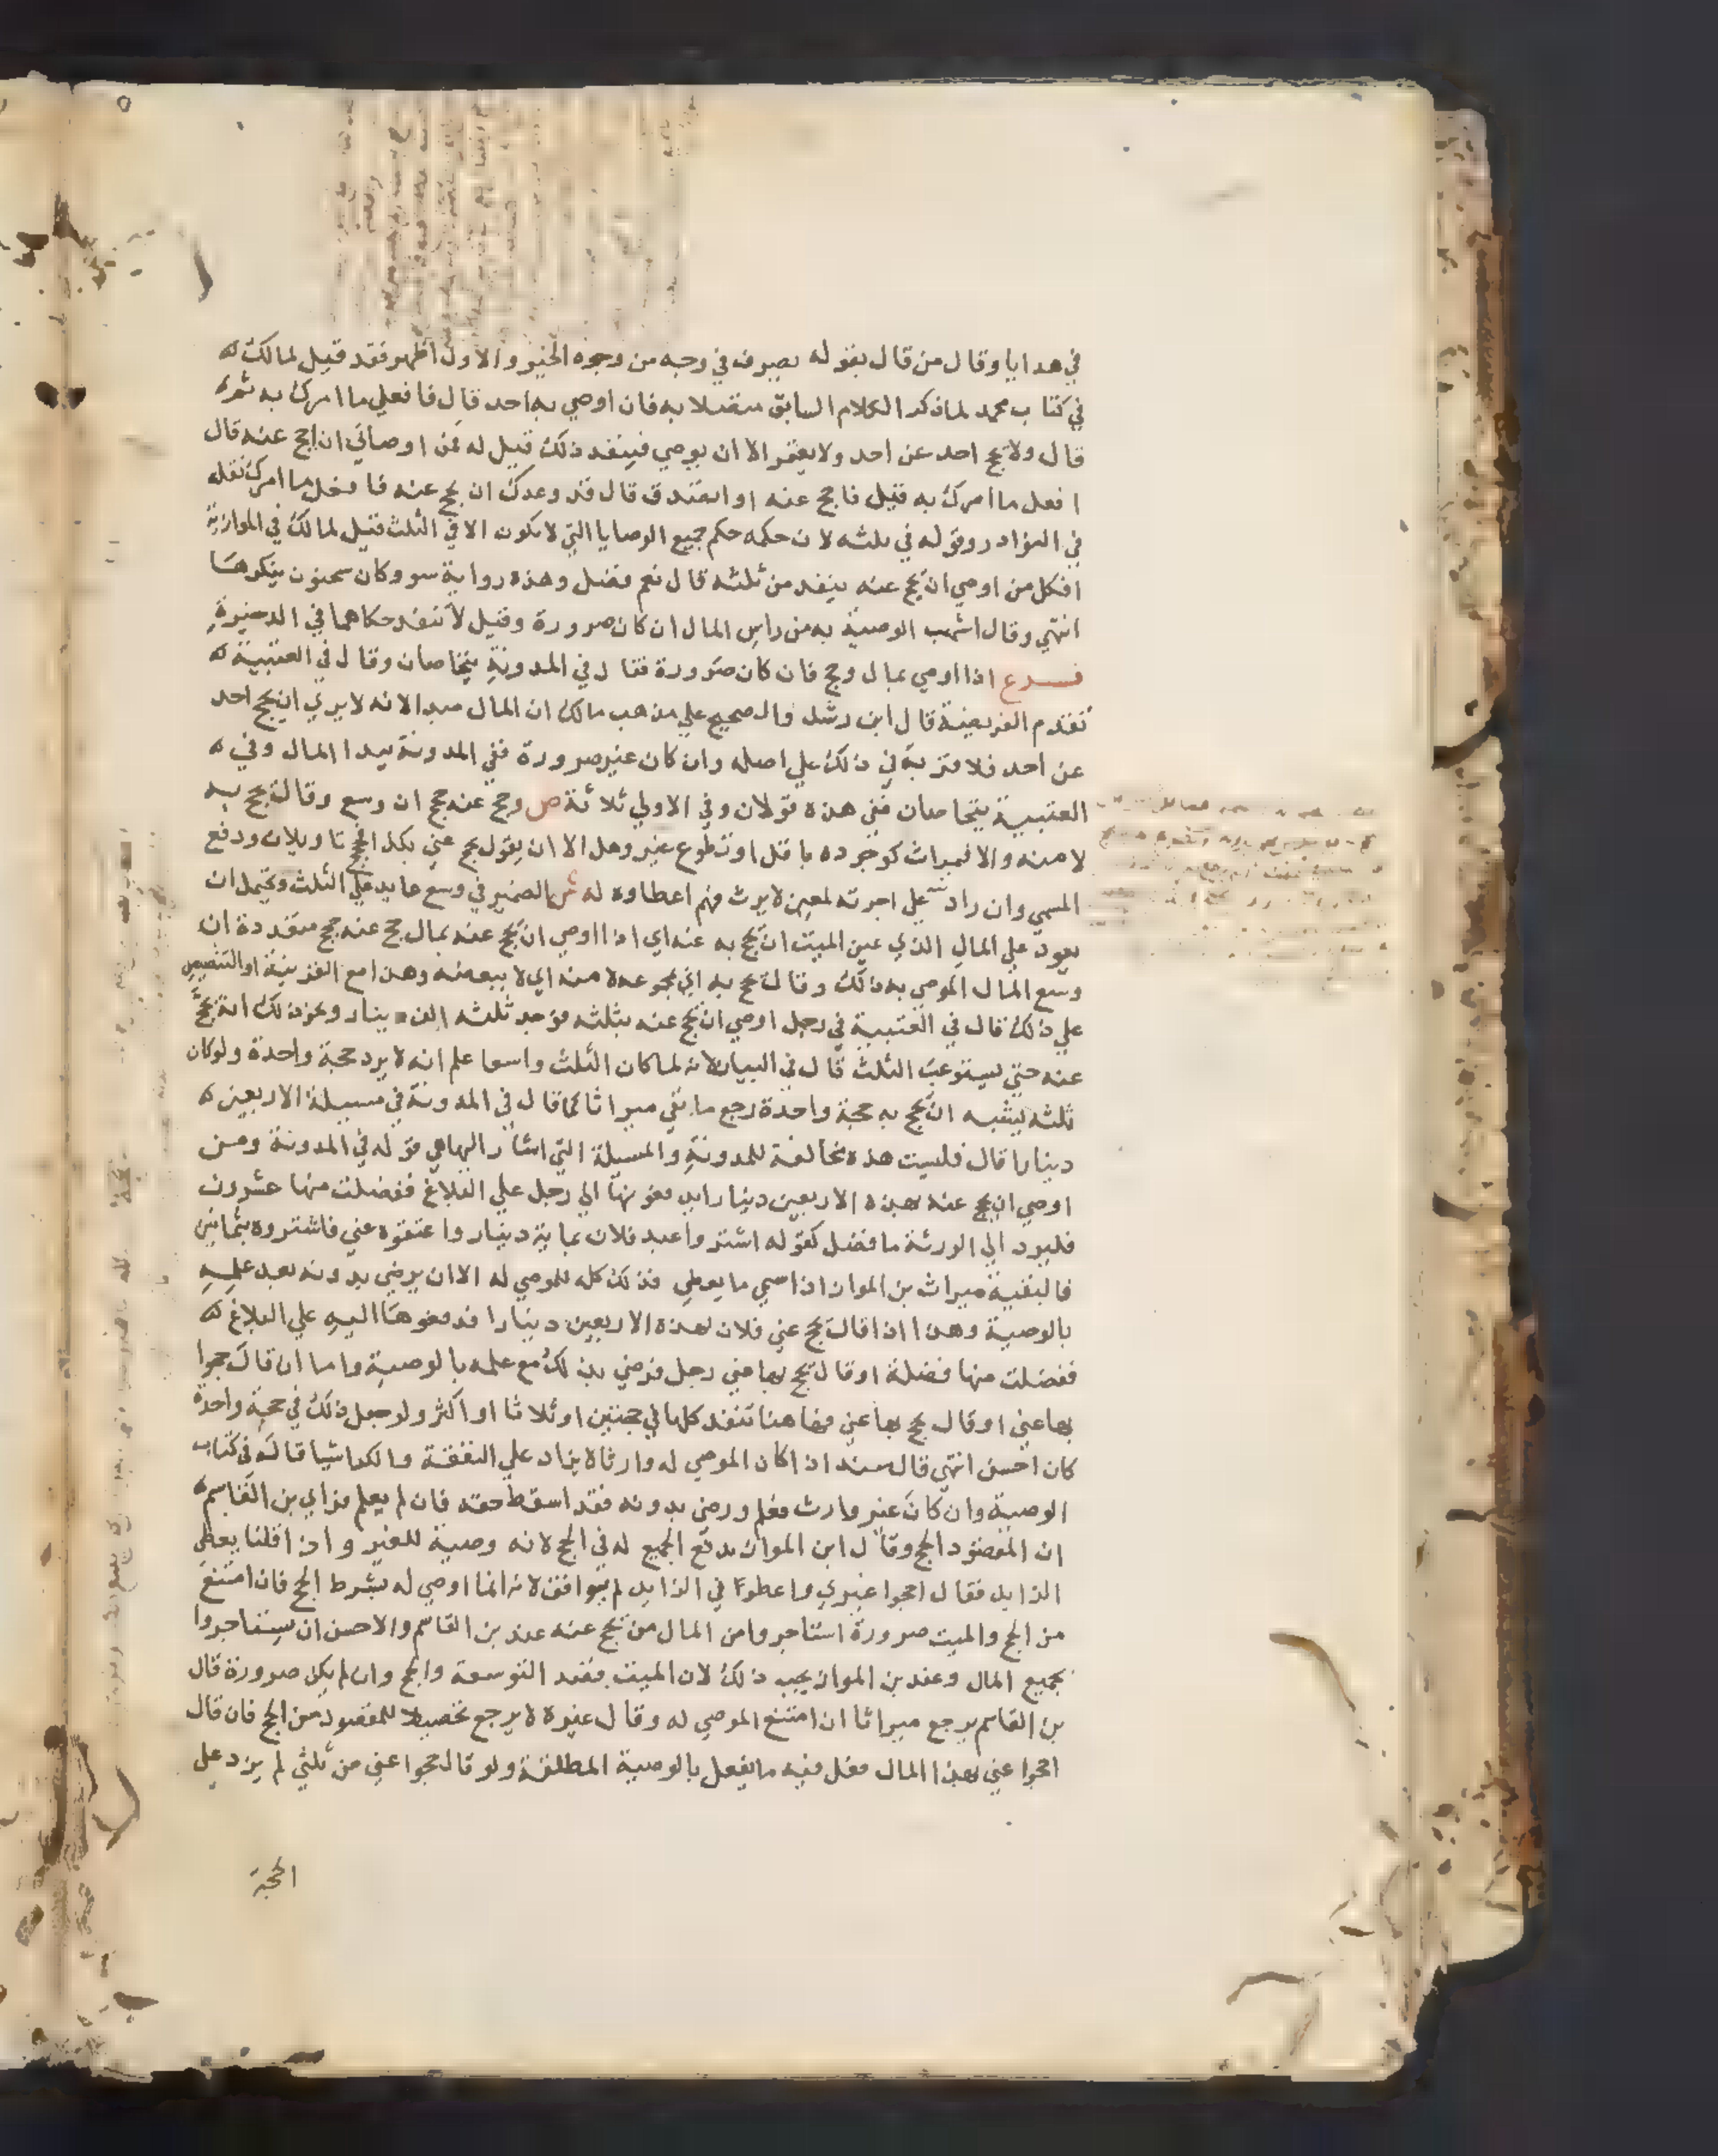 في هدايا وقال من قال بقوله يصرف في وجه من وجوه الخير والاول اظهر فقد قيل لمالك
في كتاب محمد لما ذكر الكلام السابق متصلا به فان اوصي به احد قال فافعلي ما امرك به ثم
قال ولا يحج احد عن احد ولا يعتمر الا ان يوصي فينفذ ذلك قيل له فمن اوصاني ان احج عنه قال
افعل ما امرك به قيل فاحج عنه او اتصدق قال قد وعدك ان يحج عنه فافعل ما امرك نقله
في النوادر وقوله في ثلثه لان حكمه حكم جميع الوصايا التي لا تكون الا في الثلث قيل لمالك في الموازية
افكل من اوصي ان يحج عنه ينفذ من ثلثه قال نعم فضل وهذه رواية سو وكان سحنون ينكرها
انتهي وقال اشهب الوصية به من راس المال ان كان صرورة وقيل لا تنفذ حكاهما في الذخيرة
فرع اذا اوصي بمال وحج فان كان صرورة فقال في المدونة يتحاصان وقال في العتبية
تقدم الفريضة قال ابن رشد والصحيح علي مذهب مالك ان المال مبدا لانه لا يري ان يحج احد
عن احد فلا قربة في ذلك علي اصله وان كان غير صرورة ففي المدونة يبدا المال وفي
العتبية يتحاصان ففي هذه قولان وفي الاولي ثلاثة ص وحج عنه حجج ان وسع وقال يحج به
لا منه والا فميراث كوجوده باقل او تطوع غير وهل الا ان يقول يحج عني بكذا فحجج تاويلان ودفع
المسمي وان زاد علي اجرته لمعين لا يرث فهم اعطاوه له ش الضمير في وسع عايد علي الثلث ويحتمل ان
يعود علي المال الذي عين الميت ان يحج به عنه اي اذا اوصي ان يحج عنه بمال حج عنه حجج متعددة ان
وسع المال الموصي به ذلك وقال يحج به اي بمجموعه لا منه اي لا ببعضه وهذا مع القرينة او التنصيص
علي ذلك قال في العتبية في رجل اوصي ان يحج عنه بثلثه فوجد ثلثه الف دينار ونحو ذلك انه يحج
عنه حتي يستوعب الثلث قال في البيان لانه لما كان الثلث واسعا علم انه لا يرد حجة واحدة ولو كان
ثلثه يشبه ان يحج به حجة واحدة رجع ما بقي ميراثا كما قال في المدونة في مسيلة الاربعين
دينارا قال فليست هذه مخالفة للمدونة والمسيلة التي اشار اليها هي قوله في المدونة ومن
اوصي ان يحج عنه بهذه الاربعين دينارا فدفعوها الي رجل علي البلاغ ففضلت منها عشرون
فليرد الي الورثة ما فضل كقوله اشتروا عبد فلان بماية دينار واعتقوه عني فاشتروه بثمانين
فالبقية ميراث بن المواز اذا سمي ما يعطي فذلك كله للموصي له الا ان يرضي بدونه بعد علمه
بالوصية وهذا اذا قال يحج عني فلان بهذه الاربعين دينارا فدفعوها اليه علي البلاغ
ففضلت منها فضلة او قال يحج بها عني رجل فرضي بذلك مع علمه بالوصية واما ان قال حجوا
بها عني او قال يحج بها عني فهاهنا تنفذ كلها في حجتين او ثلاثا او اكثر ولو جعل ذلك في حجة واحدة
كان احسن انتهي قال سند اذا كان الموصي له وارثا لا يزاد علي النفقة والكرا شيا قاله في كتاب
الوصية وان كان غير وارث فعلم ورضي بدونه فقد اسقط حقه فان لم يعلم فراي بن القاسم
ان المقصود الحج وقال ابن المواز يدفع الجميع له في الحج لانه وصية للغير واذا قلنا يعطي
الزايد فقال احجوا غيري واعطوا لي الزايد لم يوافق لانه انما اوصي له بشرط الحج فان امتنع
من الحج والميت صرورة استاجروا من المال من يحج عنه عند بن القاسم والاحسن ان يستاجروا
بجميع المال وعند بن المواز يجب ذلك لان الميت قصد التوسعة والحج وان لم يكن صرورة قال
بن القاسم يرجع ميراثا ان امتنع الموصي له وقال غيره لا يرجع تحصيلا للمقصود من الحج فان قال
احجوا عني بهذا المال فعل فيه ما يفعل بالوصية المطلقة ولو قال حجوا عني من ثلثي لم يزد علي
الحجة